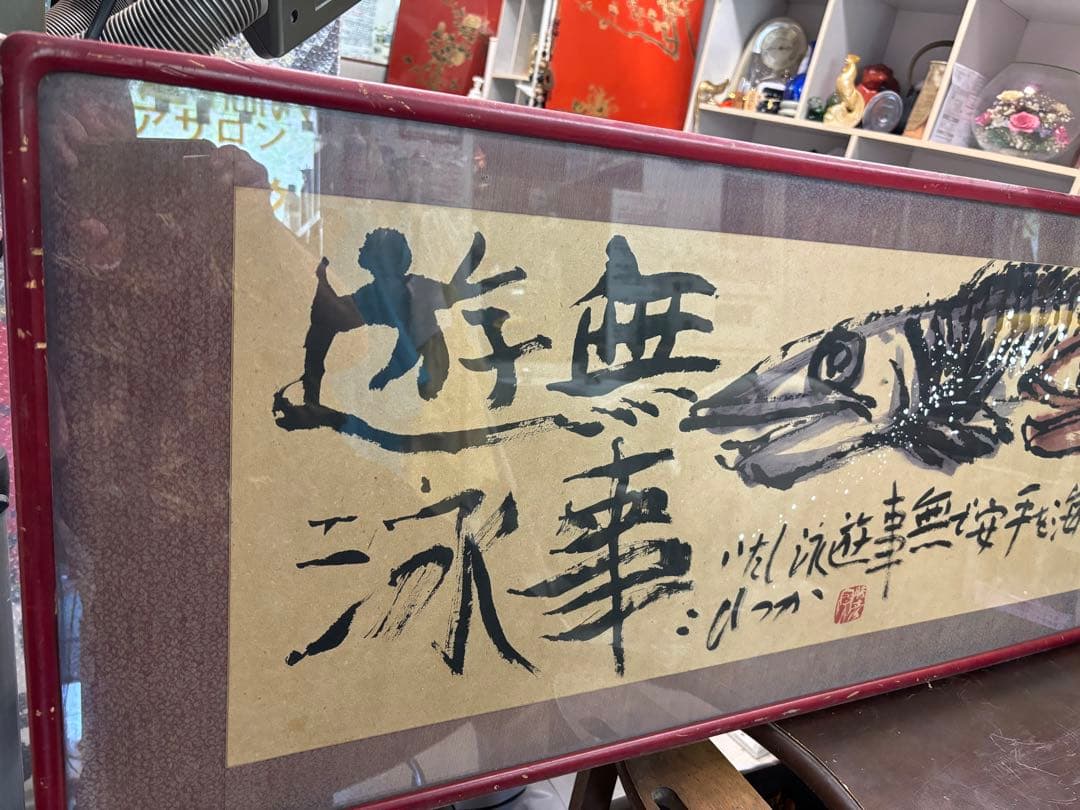 アサロン
無事
遊泳
海を平安で無事遊泳したい